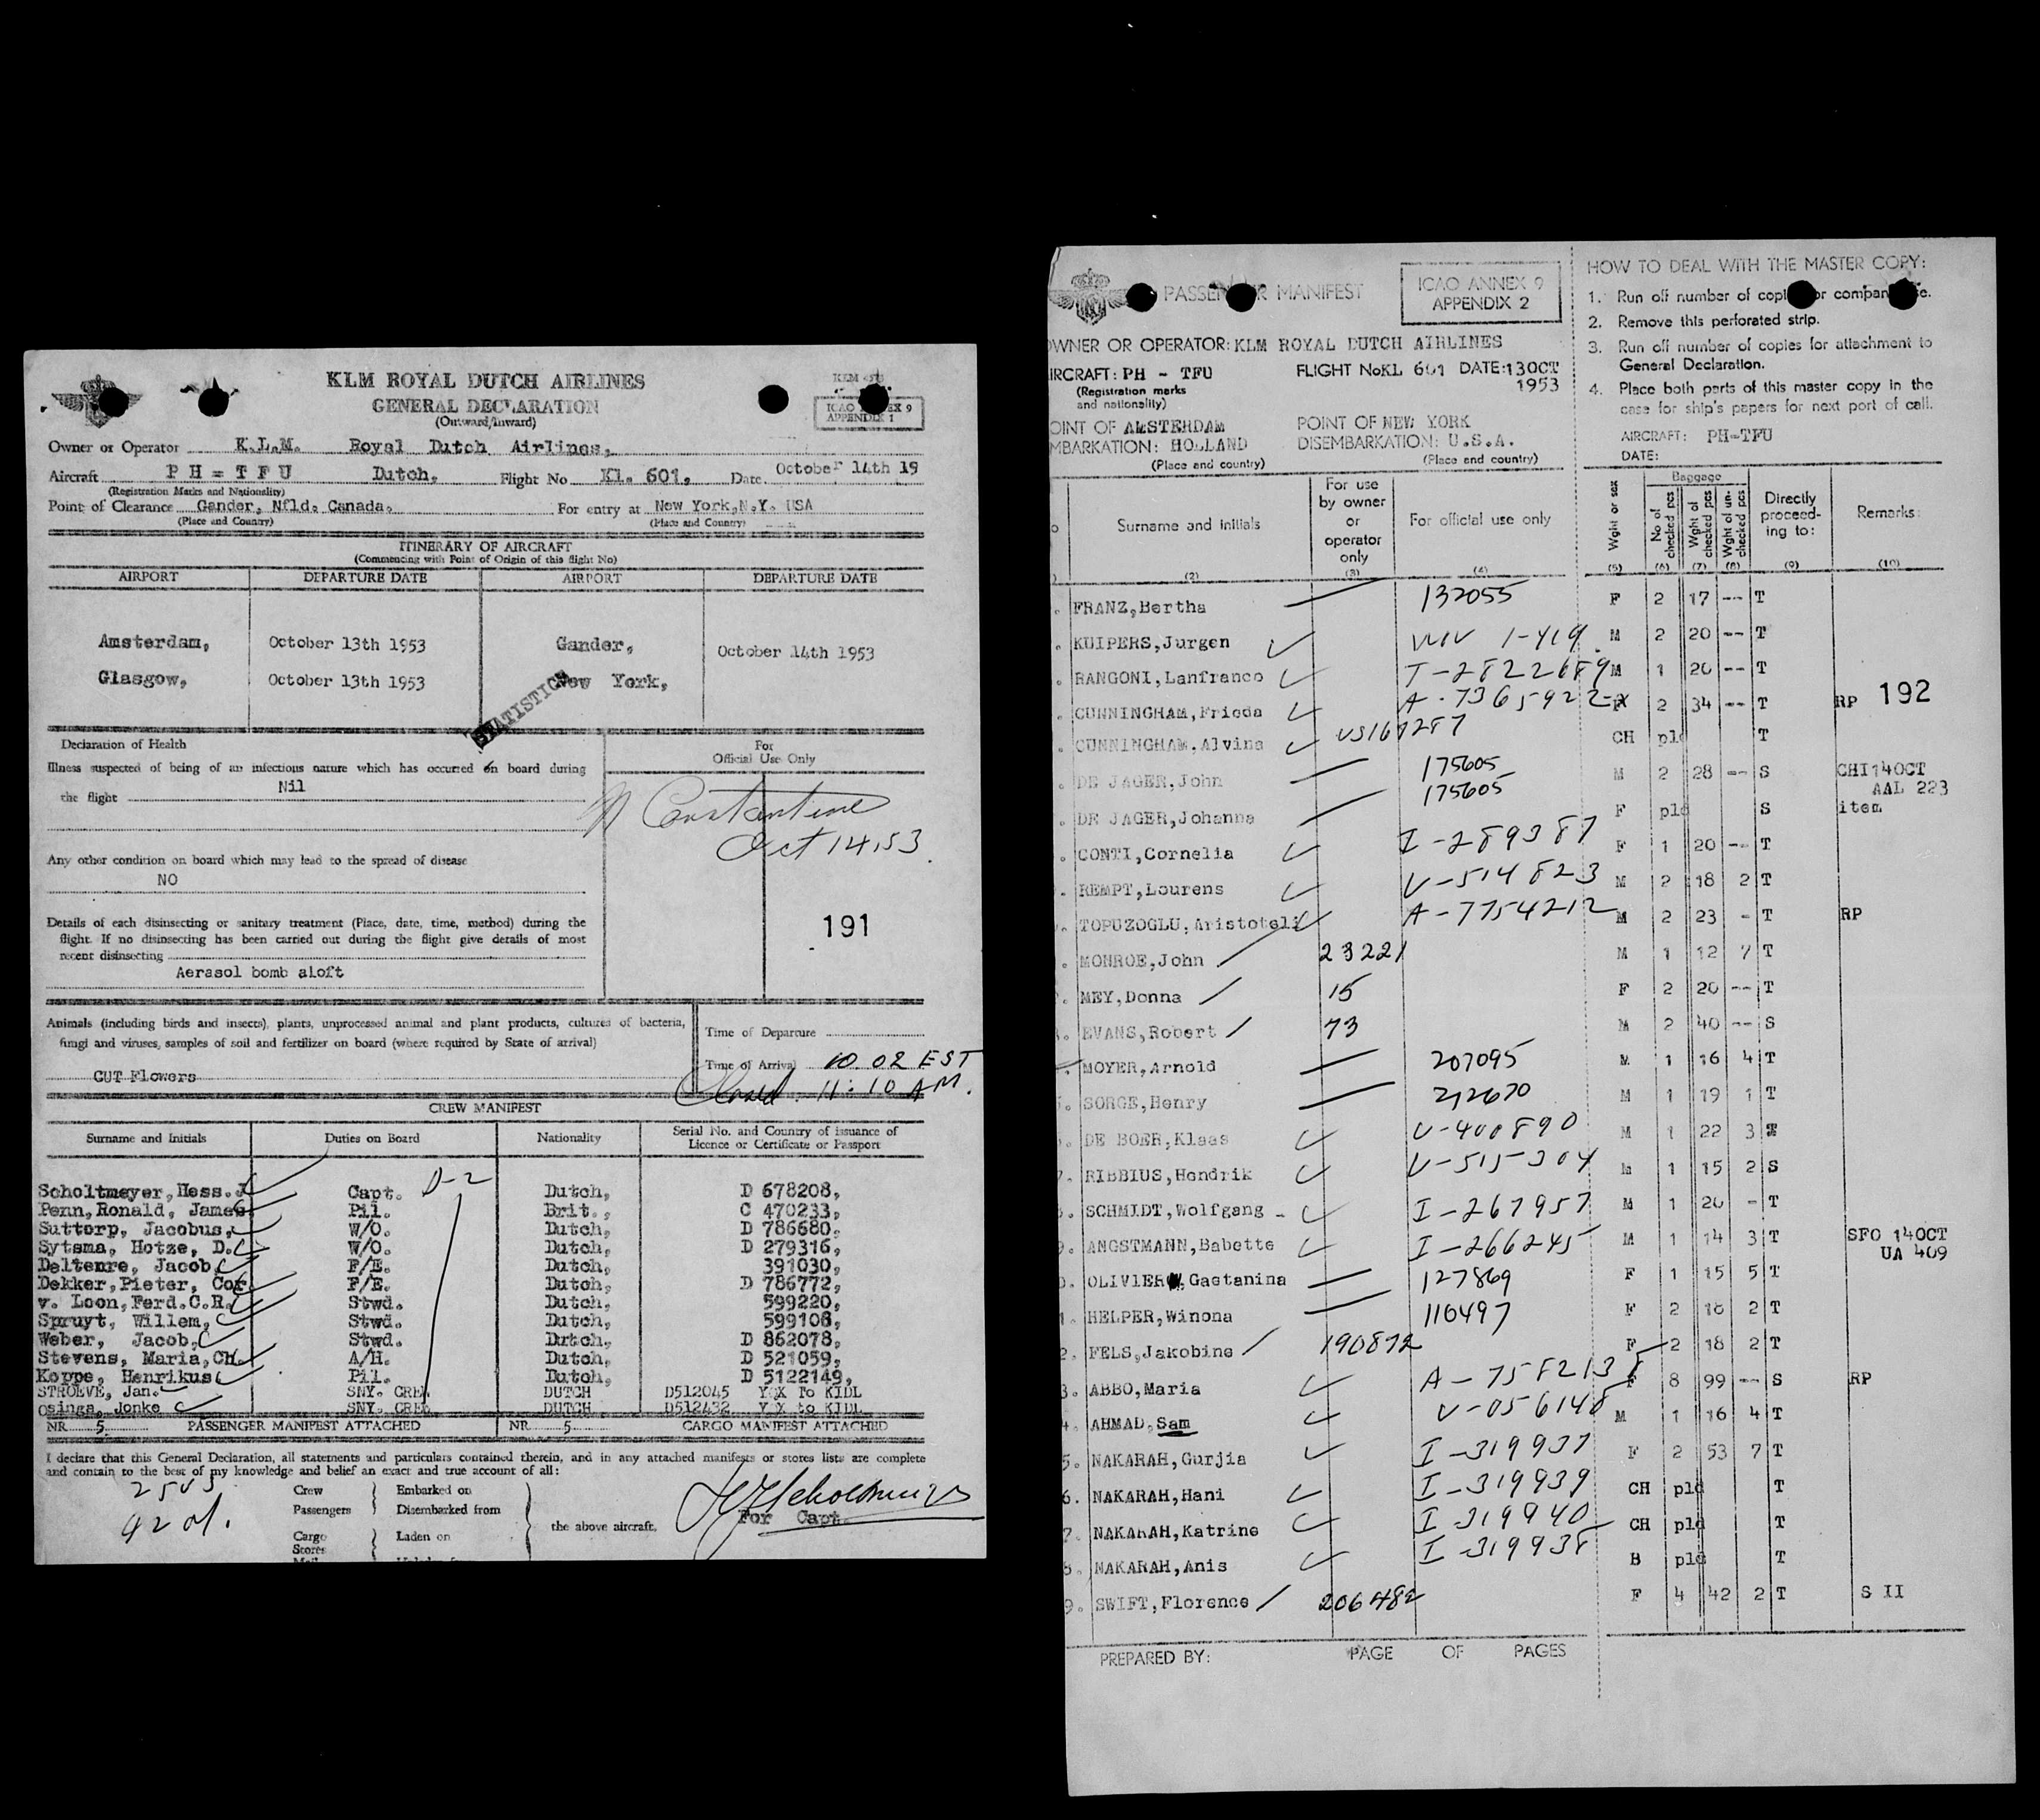 KLM ROYAL DUTCH AIRLINES
GENERAL DECLARATION
(Outward/Inward)
ICAO ANNEX 9
APPENDIX 1
Owner or Operator K.L.M. Royal Dutch Airlines,
Aircraft P H = T F U Dutch, Flight No Kl. 601, Date October 14th 19
(Registration Marks and Nationality)
Point of Clearance Gander, Nfld. Canada. For entry at New York,N.Y. USA
(Place and Country) (Place and Country)
ITINERARY OF AIRCRAFT
(Commencing with Point of Origin of this flight No)
AIRPORT DEPARTURE DATE AIRPORT DEPARTURE DATE
Amsterdam, October 13th 1953 Gander, October 14th 1953
Glasgow, October 13th 1953 New York,
STATISTICS
Declaration of Health
For
Official Use Only
Illness suspected of being of an infectious nature which has occurred on board during
the flight Nil
N Constantine
Oct 14,53.
Any other condition on board which may lead to the spread of disease
NO
191
Details of each disinsecting or sanitary treatment (Place, date, time, method) during the
flight. If no disinsecting has been carried out during the flight give details of most
recent disinsecting
Aerasol bomb aloft
Animals (including birds and insects), plants, unprocessed animal and plant products, cultures of bacteria,
fungi and viruses, samples of soil and fertilizer on board (where required by State of arrival)
CUT Flowers
Time of Departure
Time of Arrival 10.02 EST
Closed 11:10 AM.
CREW MANIFEST
Surname and Initials Duties on Board Nationality Serial No. and Country of issuance of
Licence or Certificate or Passport
D-2
Scholtmeyer,Hess.J Capt. Dutch, D 678208,
Penn,Ronald, James Pil. Brit., C 470233,
Suttorp, Jacobus, W/O. Dutch, D 786680,
Sytsma, Hotze, D. W/O. Dutch, D 279316,
Deltenre, Jacob, F/E. Dutch, 391030,
Dekker,Pieter, Cor. F/E. Dutch, D 786772,
v. Loon,Ferd.C.R. Stwd. Dutch, 599220,
Spruyt, Willem, Stwd. Dutch, 599108,
Weber, Jacob, Stwd. Dutch, D 862078,
Stevens, Maria,CH. A/H. Dutch, D 521059,
Koppe, Henrikus Pil. Dutch, D 5122149,
STROEVE, Jan. SNY. CREW DUTCH D512045 YQX To KIDL
Osinga, Jonke SNY. CREW DUTCH D512432 YQX to KIDL
NR. 5 PASSENGER MANIFEST ATTACHED NR. 5 CARGO MANIFEST ATTACHED
I declare that this General Declaration, all statements and particulars contained therein, and in any attached manifests or stores lists are complete
and contain to the best of my knowledge and belief an exact and true account of all:
Crew Embarked on
Passengers Disembarked from
the above aircraft.
Cargo Laden on
Stores
For Capt.
PASSENGER MANIFEST
ICAO ANNEX 9
APPENDIX 2
OWNER OR OPERATOR: KLM ROYAL DUTCH AIRLINES
AIRCRAFT: PH - TFU FLIGHT No KL 601 DATE: 13OCT
1953
(Registration marks
and nationality)
POINT OF AMSTERDAM POINT OF NEW YORK
EMBARKATION: HOLLAND DISEMBARKATION: U.S.A.
(Place and country) (Place and country)
HOW TO DEAL WITH THE MASTER COPY:
1. Run off number of copies for company use.
2. Remove this perforated strip.
3. Run off number of copies for attachment to
General Declaration.
4. Place both parts of this master copy in the
case for ship's papers for next port of call.
AIRCRAFT: PH-TFU
DATE:
Surname and initials
For use
by owner
or
operator
only
For official use only
Wght or sex
Baggage
No of
checked pcs
Wght of
checked pcs
Wght of un-
checked pcs
Directly
proceed-
ing to:
Remarks:
(2) (3) (4) (5) (6) (7) (8) (9) (10)
FRANZ,Bertha 132055 F 2 17 -- T
KUIPERS,Jurgen 1-419 M 2 20 -- T
RANGONI,Lanfranco T-2822689 M 1 20 -- T
CUNNINGHAM,Frieda A-7365922 F 2 34 -- T RP 192
CUNNINGHAM,Alvina US167287 CH pld T
DE JAGER,John 175605 M 2 28 -- S CHI14OCT
AAL 223
DE JAGER,Johanna 175605 F pld S item
CONTI,Cornelia I-289387 F 1 20 -- T
REMPT,Lourens V-514823 M 2 18 2 T
TOPUZOGLU,Aristoteli A-7754212 M 2 23 - T RP
MONROE,John 23221 M 1 12 7 T
MEY,Donna 15 F 2 20 -- T
EVANS,Robert 73 M 2 40 -- S
MOYER,Arnold 207095 M 1 16 4 T
SORGE,Henry 212670 M 1 19 1 T
DE BOER,Klaas V-400890 M 1 22 3 T
RIBBIUS,Hendrik V-515304 M 1 15 2 S
SCHMIDT,Wolfgang I-267957 M 1 20 - T
ANGSTMANN,Babette I-266245 M 1 14 3 T SFO 14OCT
UA 409
OLIVIER,Gaetanina 127869 F 1 15 5 T
HELPER,Winona 110497 F 2 18 2 T
FELS,Jakobine 190872 F 2 18 2 T
ABBO,Maria A-7582135 F 8 99 -- S RP
AHMAD,Sam V-056148 M 1 16 4 T
NAKARAH,Gurjia I-319937 F 2 53 7 T
NAKARAH,Hani I-319939 CH pld T
NAKARAH,Katrine I-319940 CH pld T
NAKARAH,Anis I-319938 B pld T
SWIFT,Florence 206482 F 4 42 2 T S II
PREPARED BY: PAGE OF PAGES